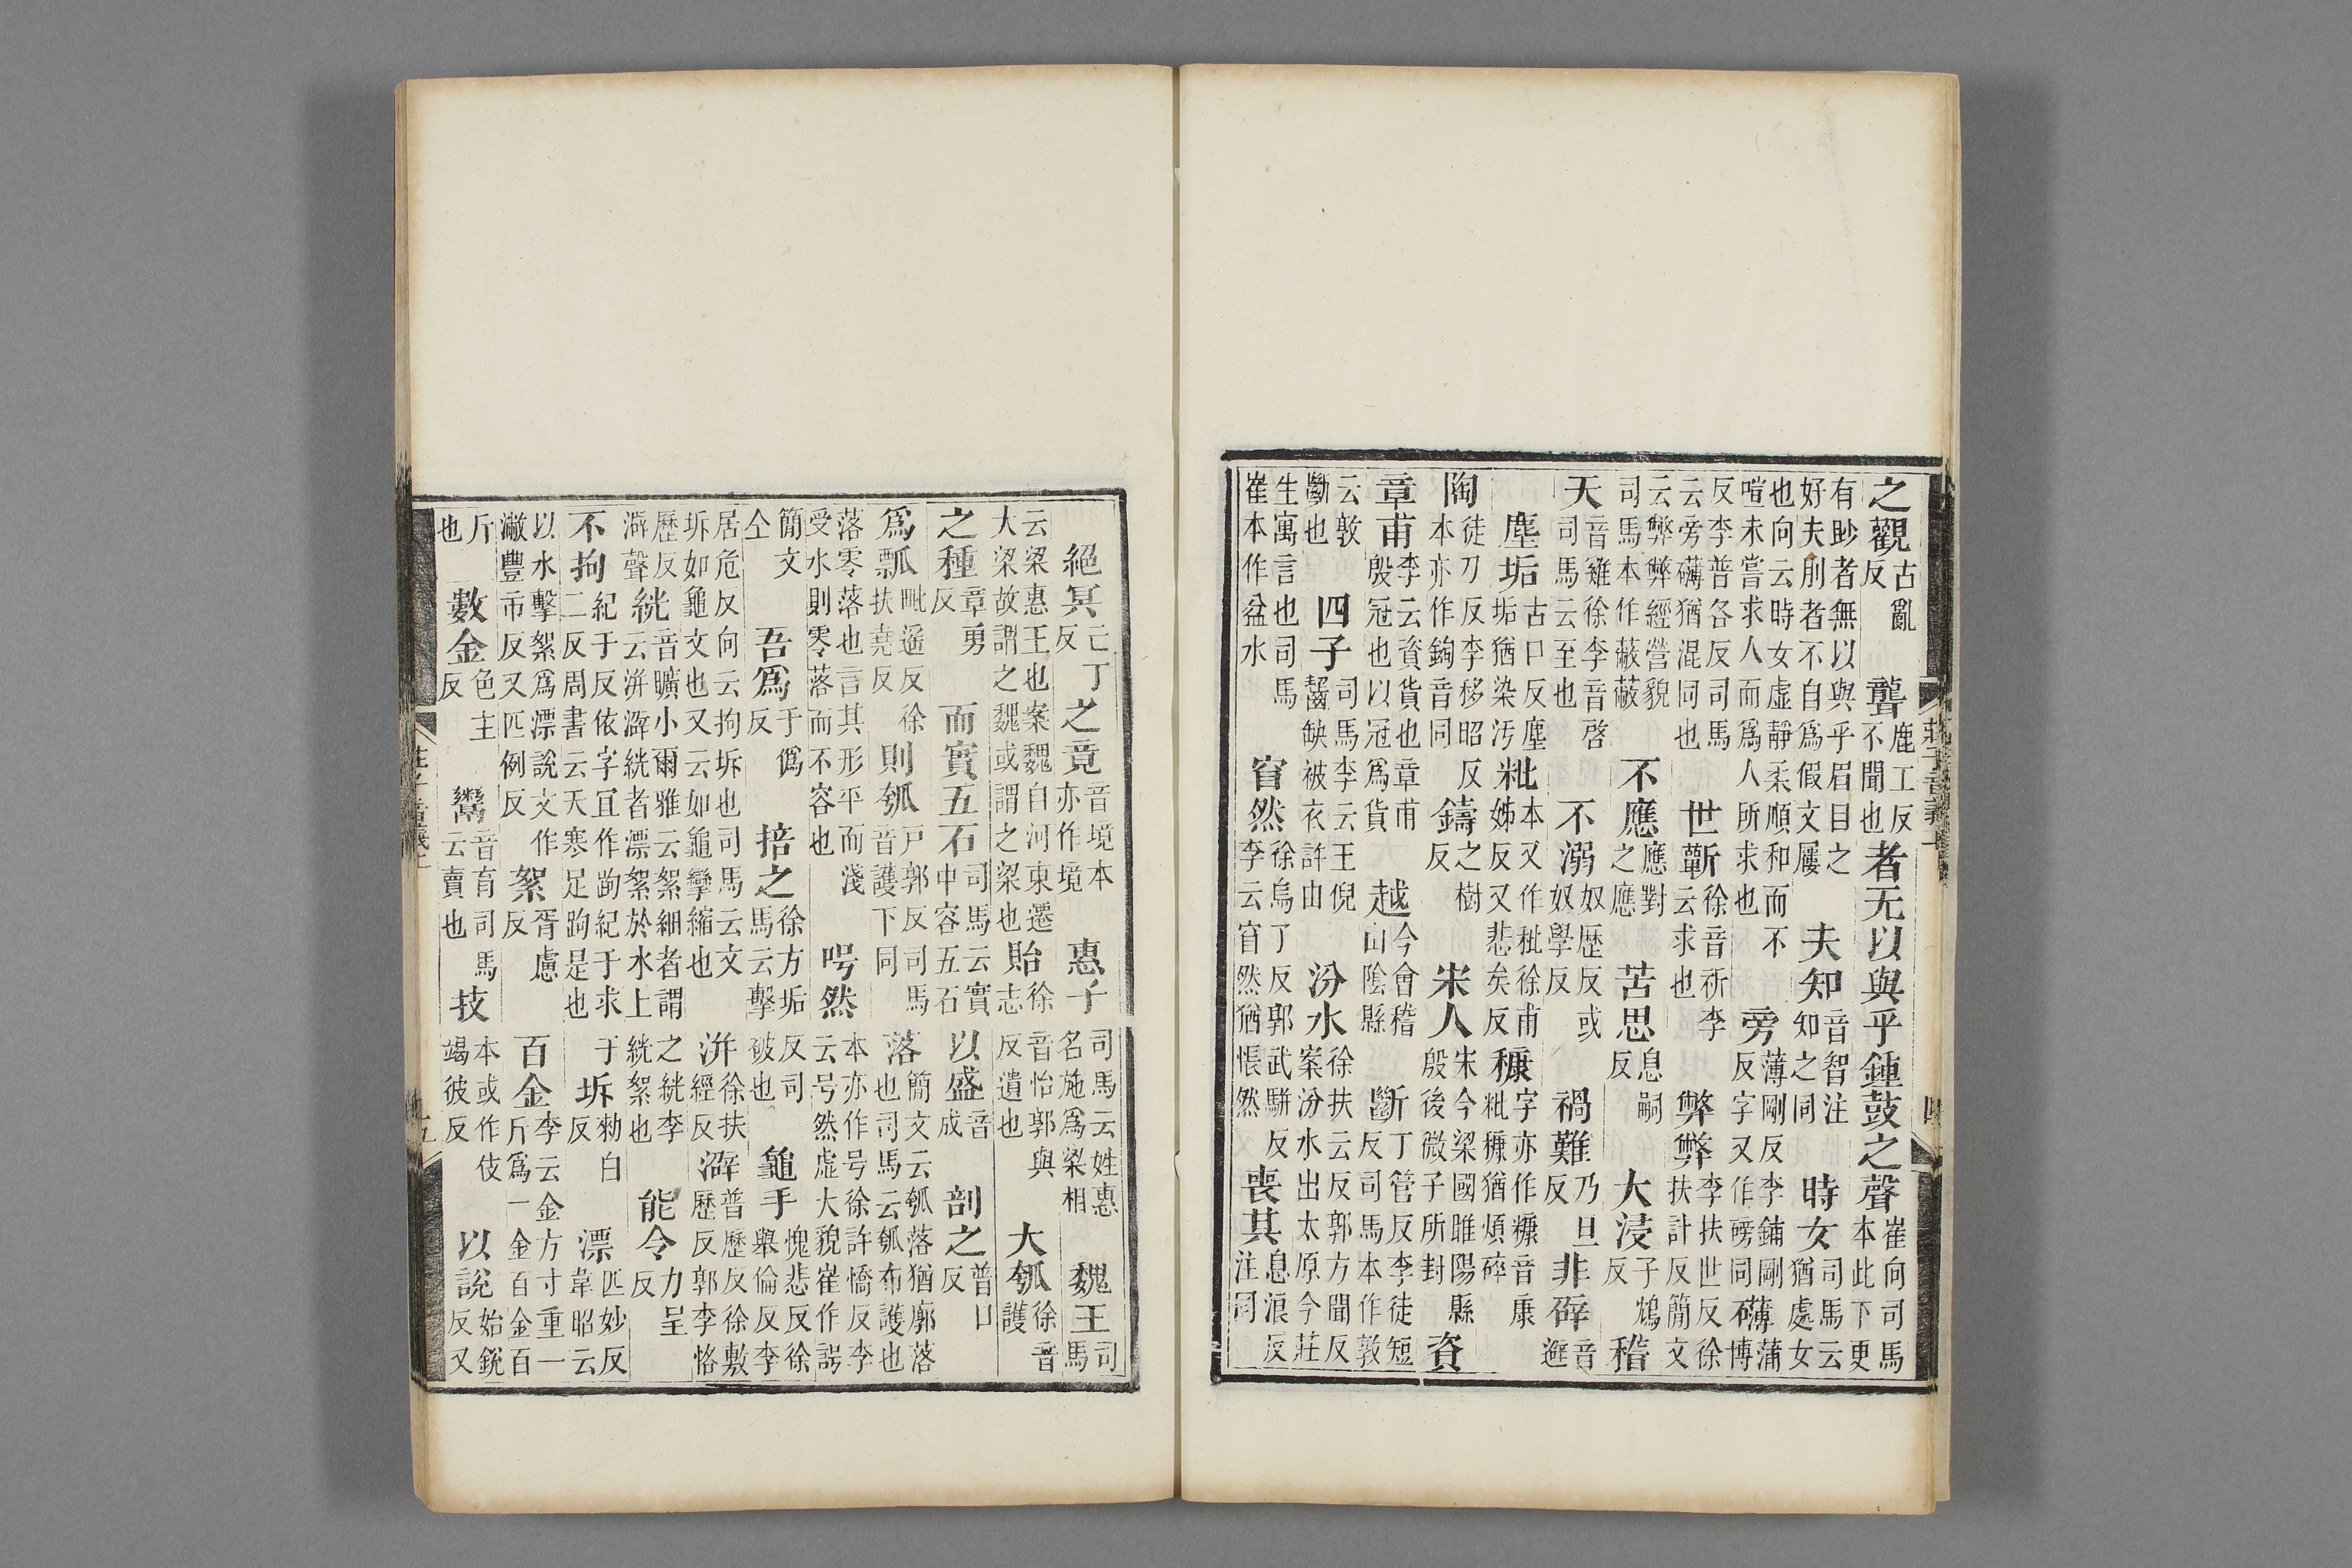 之觀古亂反聾鹿工反不聞也者无以與乎鍾鼓之聲崔向司馬本此下更
有眇者無以與乎眉目之好夫刖者不自爲假文屨夫知音智注知之同時女司馬云猶處女
也向云時女虛靜柔順和而不喧未嘗求人而爲人所求也旁薄剛反李鋪剛反字又作磅同礴蒲博
反李普各反司馬云旁礴猶混同也世蘄徐音祈李云求也弊弊李扶世反徐扶計反簡文
云弊弊經營貌司馬本作蔽蔽不應應對之應苦思息嗣反大浸子鴆反稽
天音雞徐李音啓司馬云至也不溺奴歷反或奴學反禍難乃旦反非礕音避
塵垢古口反塵垢猶染汚粃本又作秕徐甫姊反又悲矣反穅字亦作糠音康粃糠猶煩碎
陶徒刀反李移昭反本亦作鋾音同鑄之樹反宋人宋今梁國睢陽縣殷後微子所封資
章甫李云資貨也章甫殷冠也以冠爲貨越今會稽山陰縣斷丁管反李徒短反司馬本作敦
云敦斷也四子司馬李云王倪齧缺被衣許由汾水徐扶云反郭方聞反案汾水出太原今莊
生寓言也司馬崔本作盆水窅然徐烏了反郭武駢反李云窅然猶悵然喪其息浪反注同
莊子音義上 四
絕冥亡丁反之竟音境本亦作境惠子司馬云姓惠名施爲梁相魏王司馬
云梁惠王也案魏自河東遷大梁故謂之魏或謂之梁也貽徐音怡郭與志反遺也大瓠徐音護
之種章勇反而實五石司馬云實中容五石以盛音成剖之普口反
爲瓢毗遙反徐扶堯反則瓠戶郭反司馬音護下同落簡文云瓠落猶廓落也司馬云瓠布護也
落零落也言其形平而淺受水則零落而不容也呺然本亦作号徐許憍反李云号然虛大貌崔作諤
簡文仝吾爲于僞反掊之徐方垢反司馬云擊破也龜手愧悲反徐舉倫反李
居危反向云拘坼也司馬云文坼如龜文也又云如龜攣縮也洴徐扶經反澼普歷反徐敷歷反郭李恪
歷反澼聲絖音曠小爾雅云絮細者謂之絖李云洴澼絖者漂絮於水上絖絮也能令力呈反
不拘紀于反依字宜作跔紀于求于二反周書云天寒足跔是也坼勑白反漂匹妙反韋昭云
以水擊絮爲漂說文作潎豐市反又匹例反絮胥慮反百金李云金方寸重一斤爲一金百金百
斤也數金色主反鬻音育司馬云賣也技本或作伎竭彼反以說始銳反又
莊子音義上 五